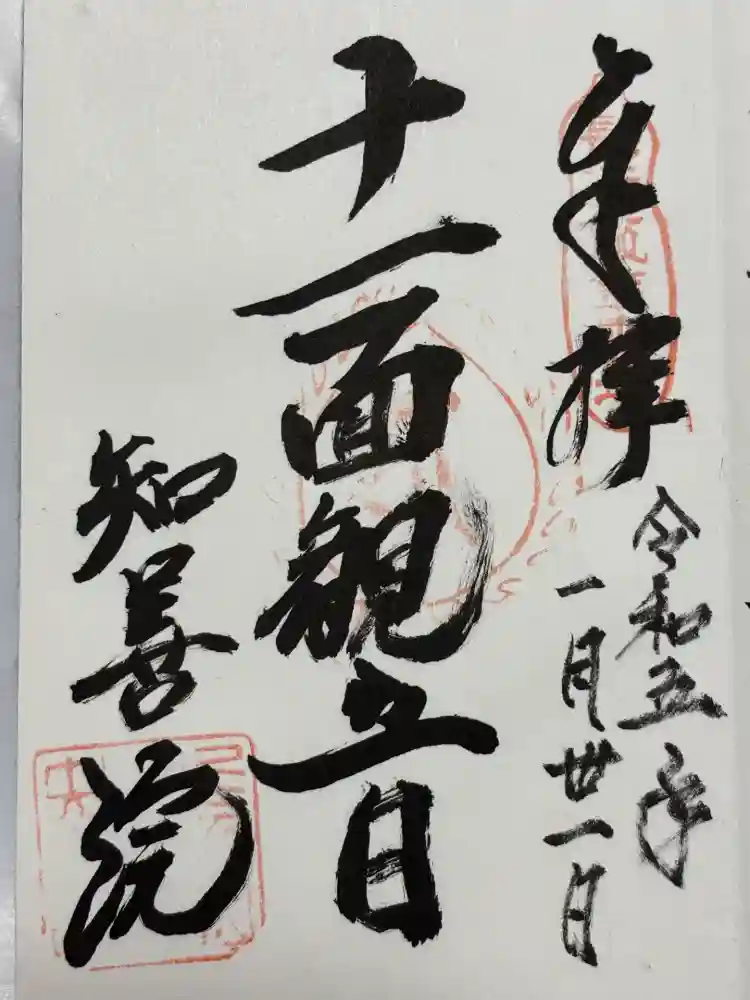 奉拝
令和五年
一月廿一日
十一面観立日
知善院